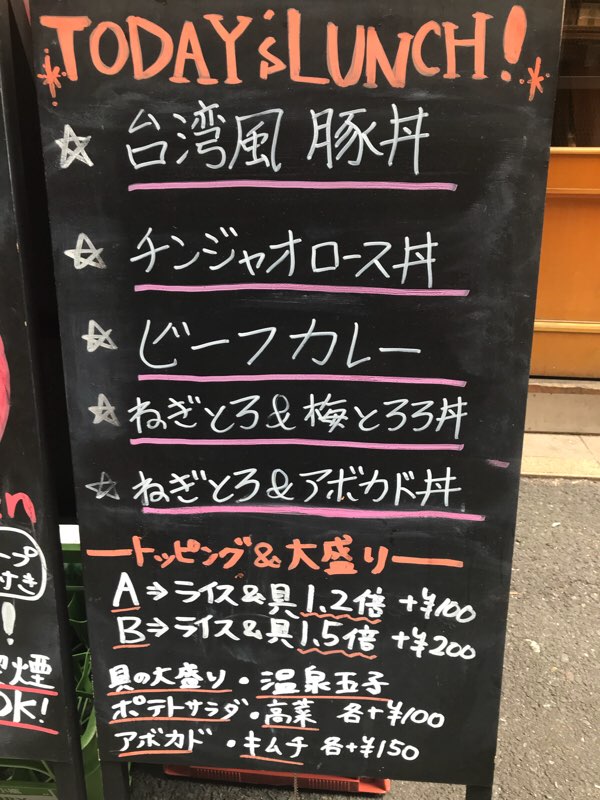 TODAY'S LUNCH!
☆ 台湾風 豚丼
☆ チンジャオロース丼
☆ ビーフカレー
☆ ねぎとろ&梅とろろ丼
☆ ねぎとろ&アボカド丼
トッピング&大盛り
A⇒ライス&具1.2倍 +¥100
B⇒ライス&具1.5倍 +¥200
具の大盛り・温泉玉子
ポテトサラダ・高菜 各+¥100
アボカド・キムチ 各+¥150
n
ープ
付き
!
煙
OK!